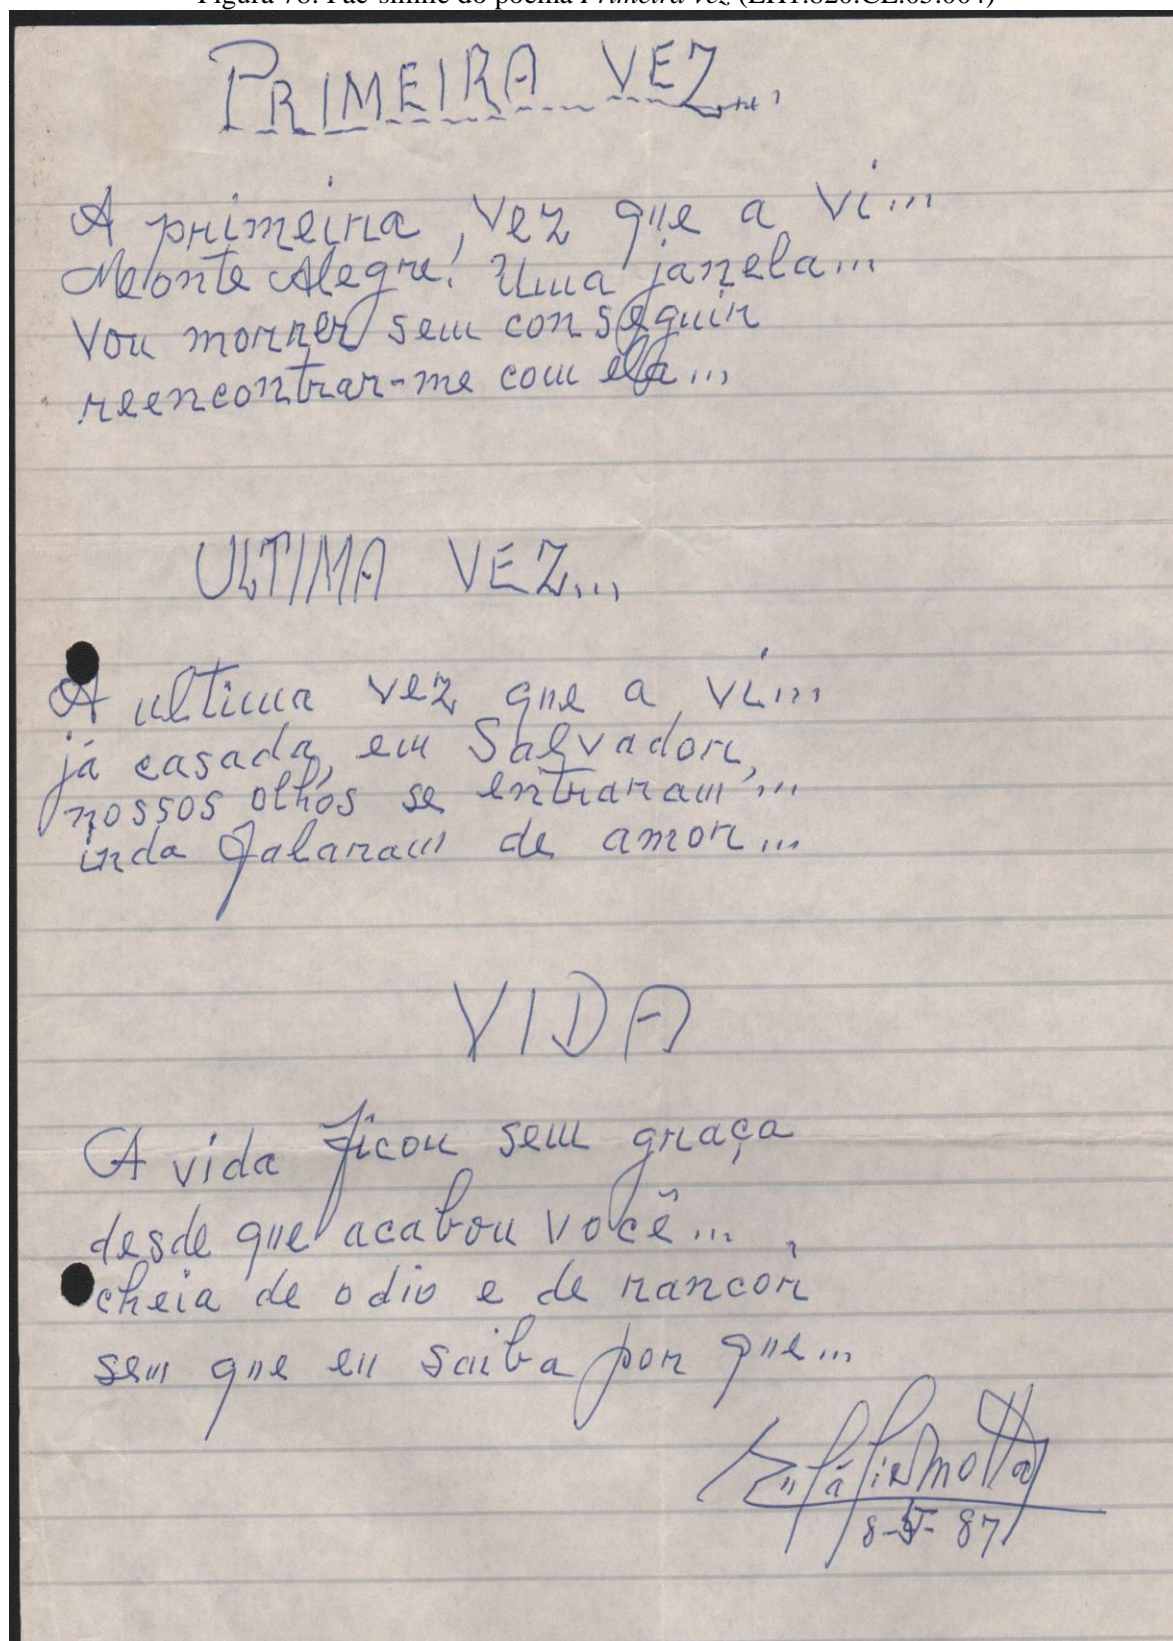 Figura 78: Fac-símile do poema Primeira vez (EH1.820.CL.05.004)
PRIMEIRA VEZ...
A primeira vez que a vi...
Monte Alegre! Uma janela...
Vou morrer sem conseguir
reencontrar-me com ela...
ULTIMA VEZ...
A ultima vez que a vi...
já casada, em Salvador,
nossos olhos se entraram...
inda falaram de amor...
VIDA
A vida ficou sem graça
desde que acabou você...
cheia de odio e de rancor
sem que eu saiba por que...
Eulálio Motta
87